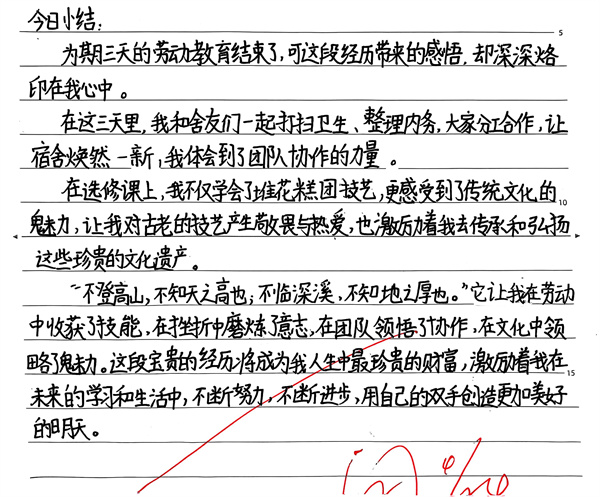 今日小结:
为期三天的劳动教育结束了,可这段经历带来的感悟,却深深烙
印在我心中。
5
在这三天里,我和舍友们一起打扫卫生、整理内务,大家分工合作,让
宿舍焕然一新,我体会到了团队协作的力量。
在选修课上,我不仅学会了堆花糕团技艺,更感受到了传统文化的
10
魅力,让我对古老的技艺产生敬畏与热爱,也激励着我去传承和弘扬
这些珍贵的文化遗产。
“不登高山,不知天之高也;不临深溪,不知地之厚也。”它让我在劳动
中收获了技能,在挫折中磨炼了意志,在团队领悟了协作,在文化中领
略了魅力。这段宝贵的经历将成为我人生中最珍贵的财富,激励着我在
15
未来的学习和生活中,不断努力,不断进步,用自己的双手创造更加美好
的明天。